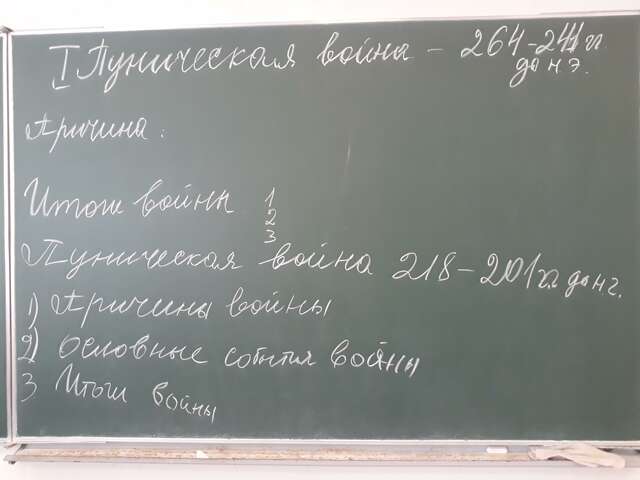 I Пуническая война – 264-241 гг
до н.э.
Причина:
Итоги войны 1
2
3
Пуническая война 218-201 гг до н.э.
1) Причины войны
2) основные события войны
3 Итоги войны